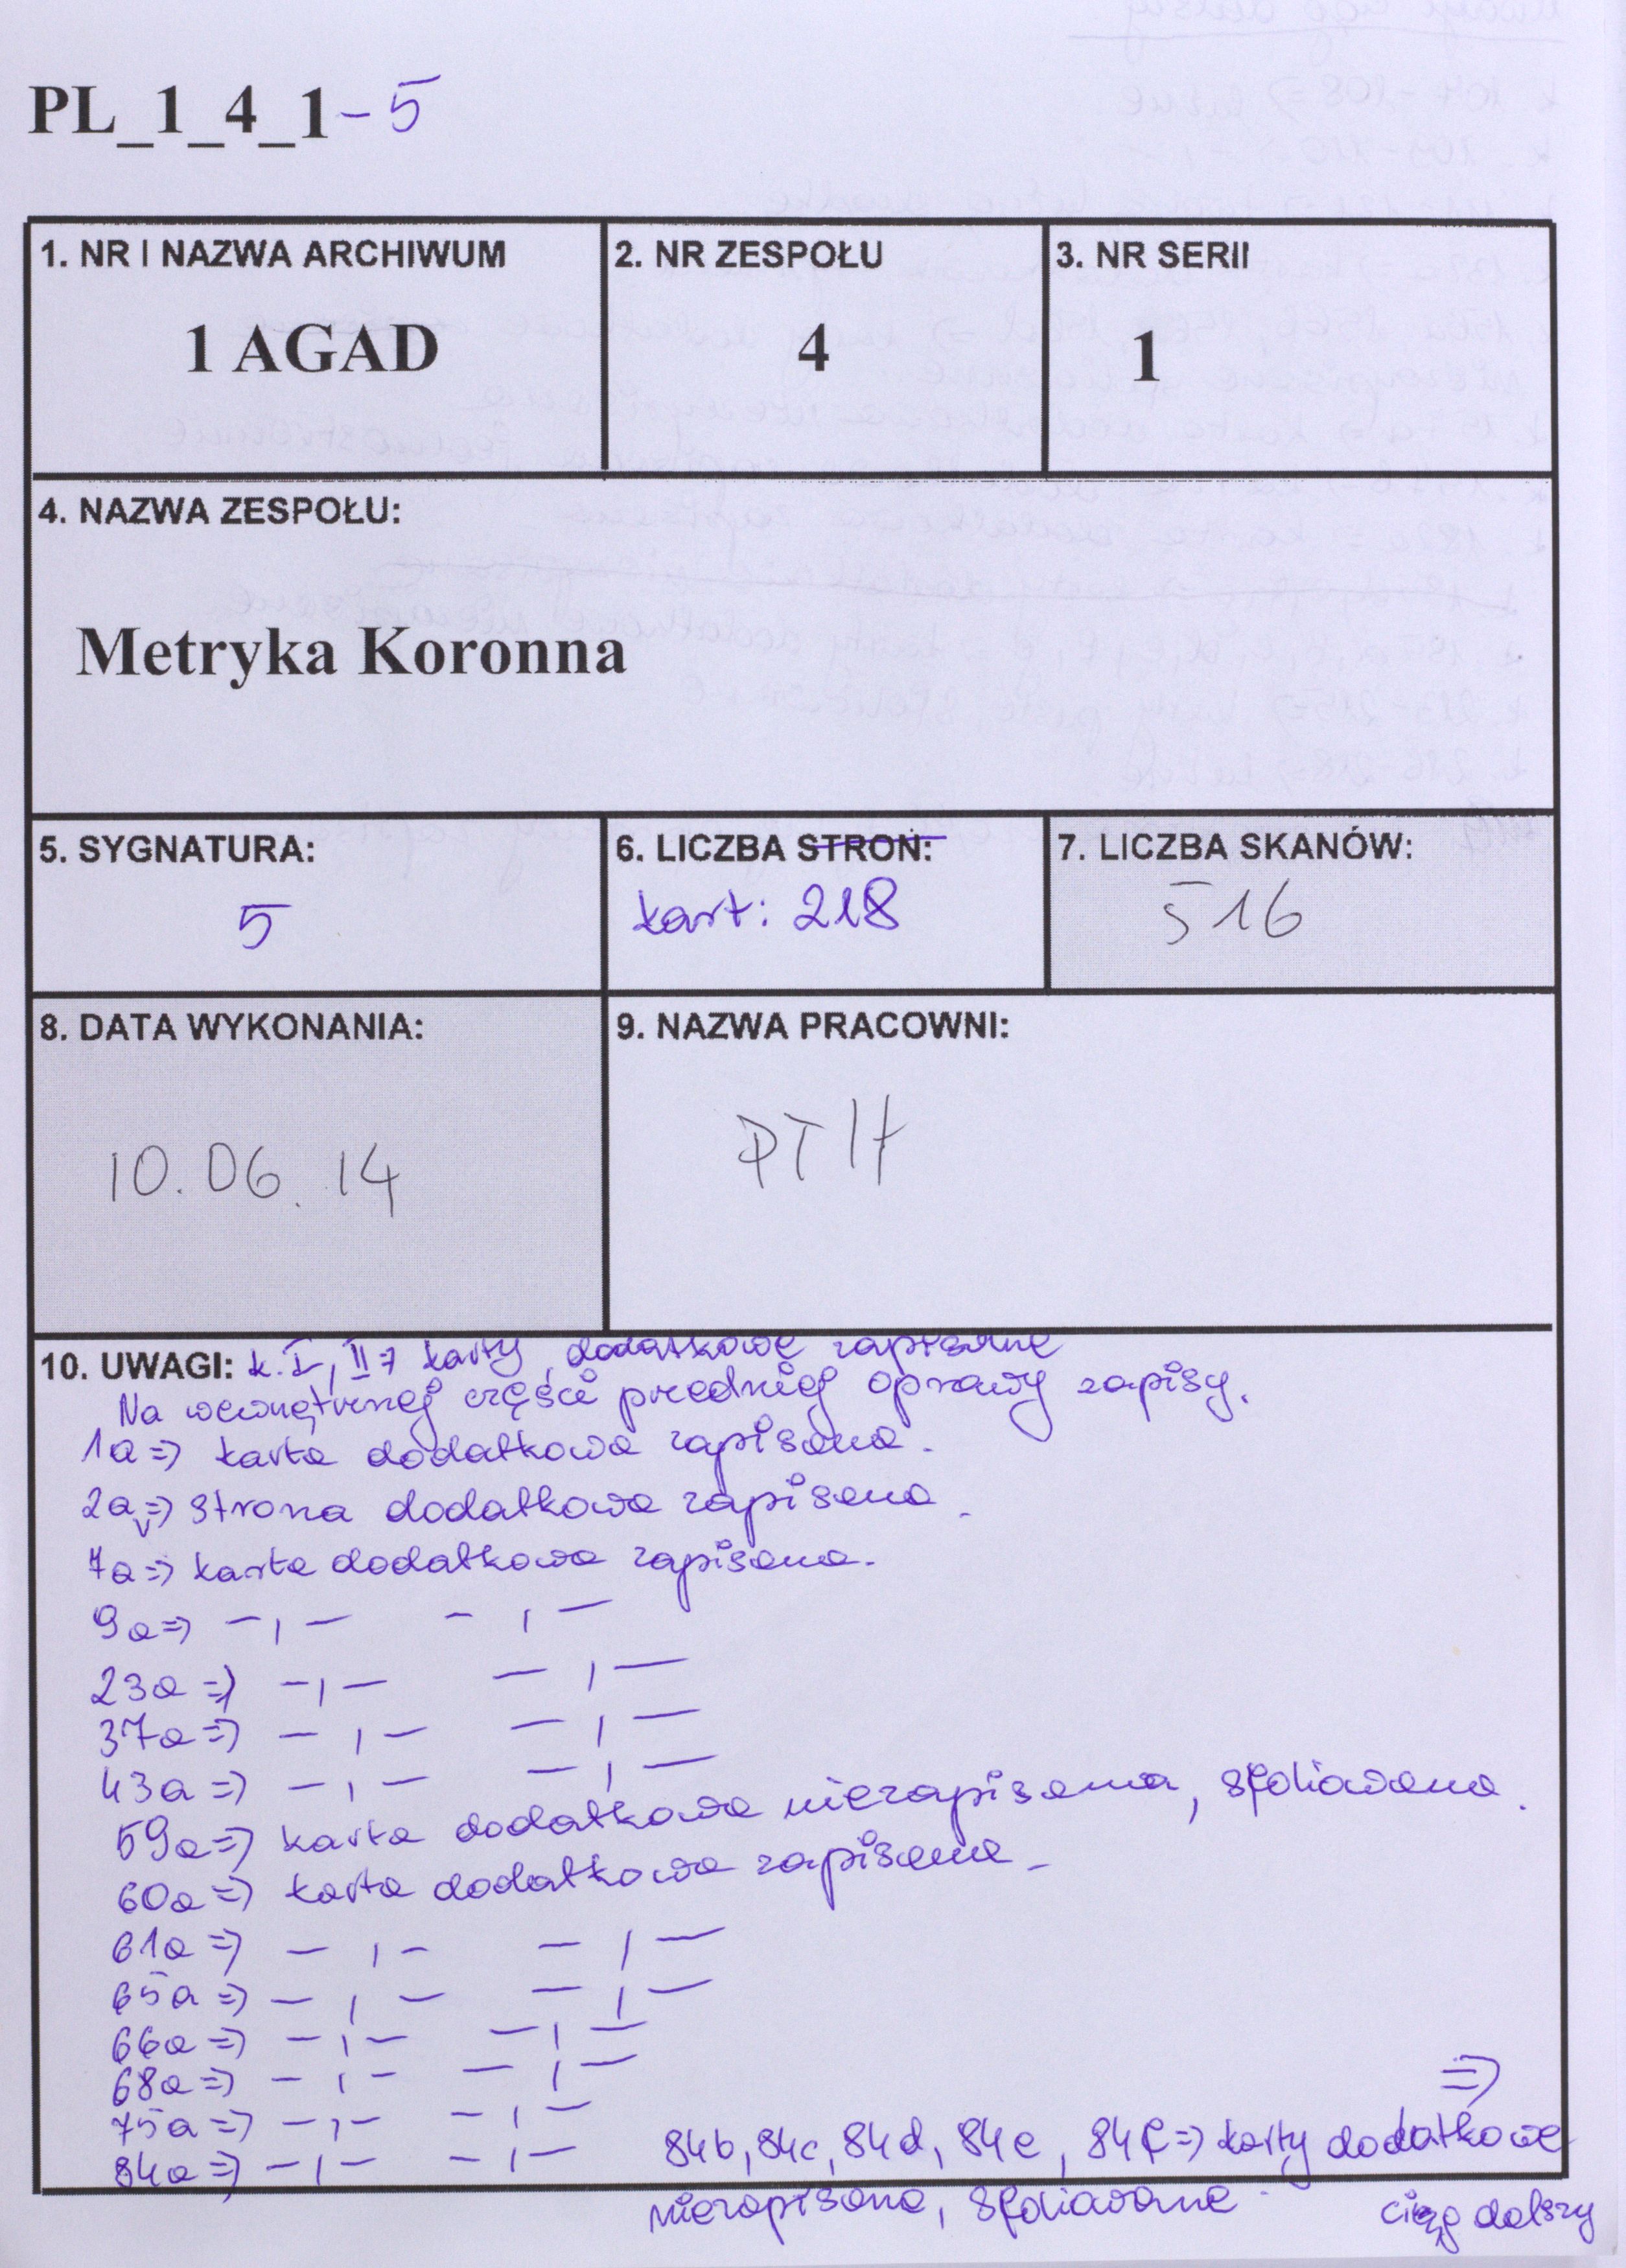 PL_1_4_1-5
1. NR I NAZWA ARCHIWUM
1 AGAD
2. NR ZESPOŁU
4
3. NR SERII
1
4. NAZWA ZESPOŁU:
Metryka Koronna
5. SYGNATURA:
5
6. LICZBA STRON:
kart: 218
7. LICZBA SKANÓW:
516
8. DATA WYKONANIA:
10.06.14
9. NAZWA PRACOWNI:
PTH
10. UWAGI: k. I, II => karty dodatkowe zapisane
Na wewnętrznej części przedniej oprawy zapisy.
1a => karta dodatkowa zapisana.
2av => strona dodatkowa zapisana.
7a => karta dodatkowa zapisana.
9a => - , - - , -
23a => - , - - , -
37a => - , - - , -
43a => - , - - , -
59a => karta dodatkowa niezapisana, sfoliowana.
60a => karta dodatkowa zapisana -
61a => - , - - , -
65a => - , - - , -
66a => - , - - , -
68a => - , - - , -
75a => - , - - , -
84a => - , - - , -
84b, 84c, 84d, 84e, 84f => karty dodatkowe
niezapisane, sfoliowane.
=>
ciąg dalszy